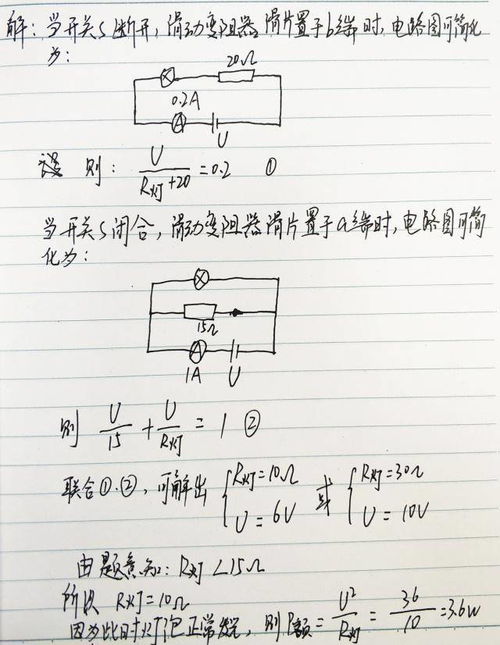 解：当开关S断开，滑动变阻器滑片置于b端时，电路图可简化
为：
20Ω
0.2A
A
U
则： U/(R灯+20) = 0.2 ①
当开关S闭合，滑动变阻器滑片置于a端时，电路图可简
化为：
15Ω
A
1A U
则 U/15 + U/R灯 = 1 ②
联合①.②，可解出 { R灯=10Ω U=6V 或 { R灯=30Ω U=10V
由题意知：R灯<15Ω
所以 R灯=10Ω
因为此时灯泡正常发光，则P额= U²/R灯 = 36/10 =3.6w